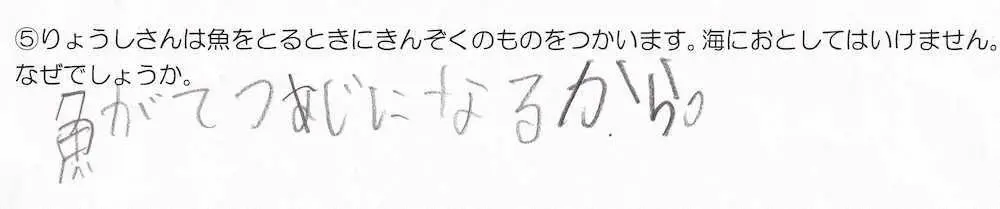 ⑤りょうしさんは魚をとるときにきんぞくのものをつかいます。海におとしてはいけません。
なぜでしょうか。
魚がてつあじになるから。